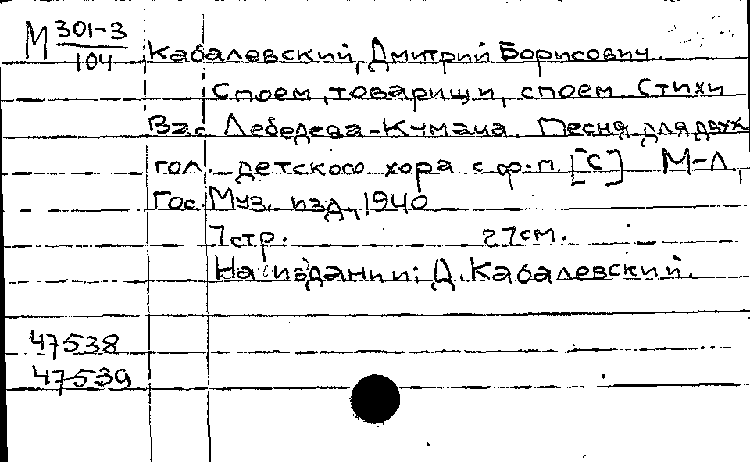 М 301-3
104
Кабалевский, Дмитрий Борисович.
Споем, товарищи, споем. Стихи
Вас. Лебедева-Кумача. Песня для двух
гол. детского хора с ф.-п. [С] М-Л,
Гос. Муз. изд., 1940
7 стр. 27 см.
На издании: Д. Кабалевский.
47538
47539